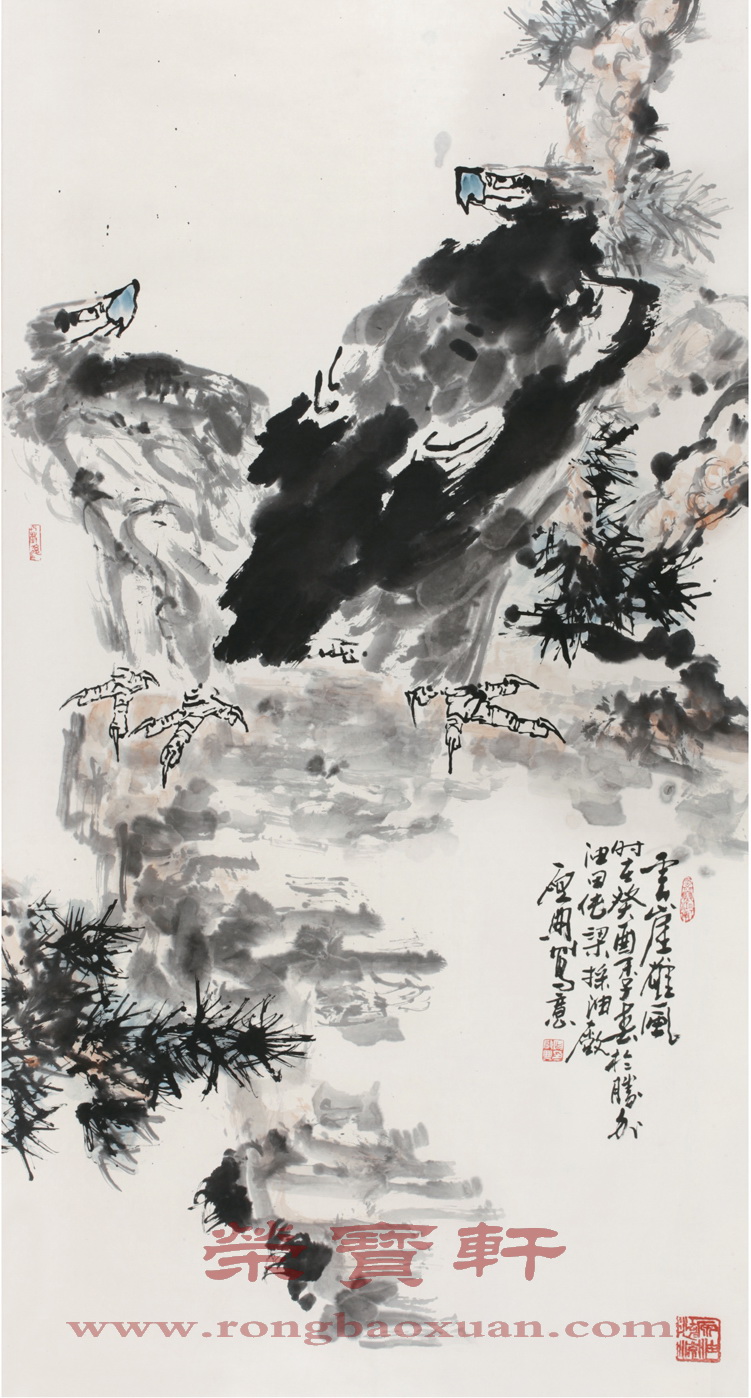 云崖雄风
时在癸酉季春於勝利
油田代梁採油廠
应州写意
榮寶軒
www.rongbaoxuan.com